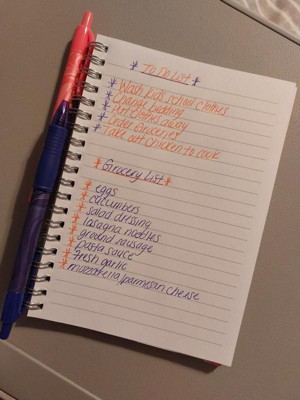 * To Do List *
* Wash kids school clothes
* Change bedding
* Put clothes away
* Order Groceries
* Take out chicken to cook
* Grocery List *
* eggs
* cucumbers
* salad dressing
* lasagna noodles
* ground sausage
* pasta sauce
* fresh garlic
* mozzarella/parmesan cheese